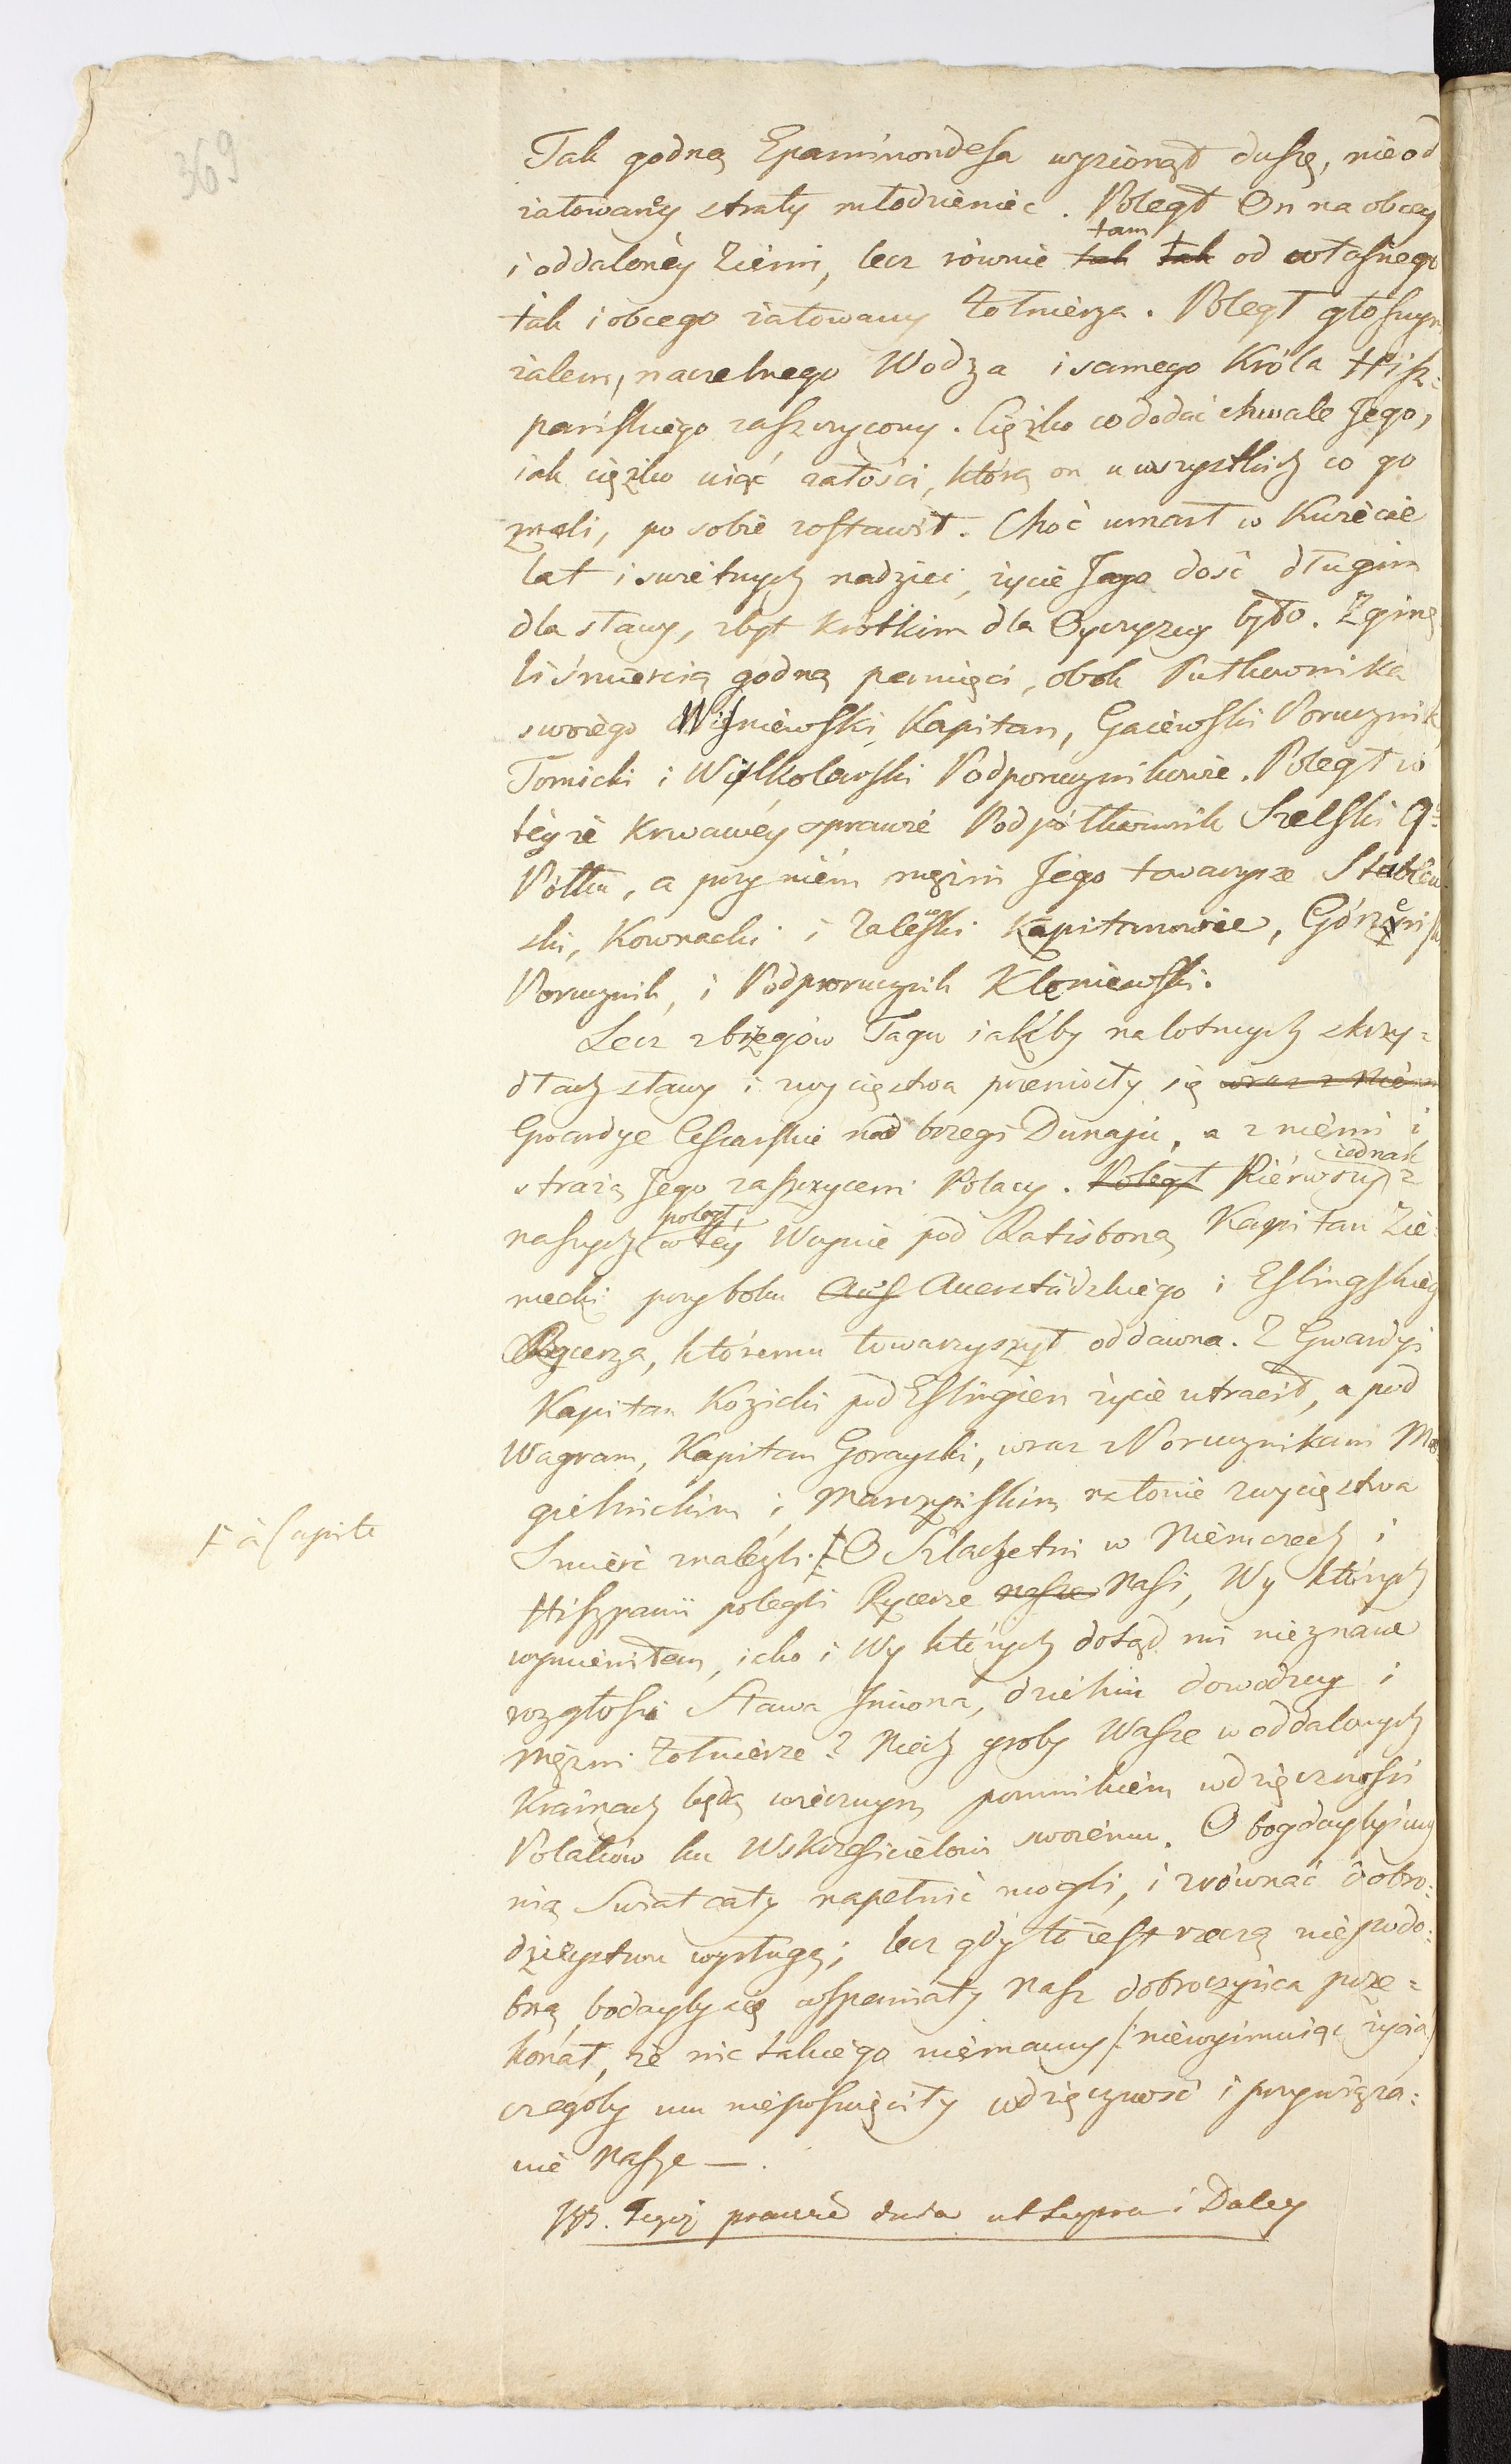 369
Tak godną Epaminondesa wyzionął duszę, nieod
żałowaney straty młodzieniec. Poległ On na obcey
i oddaloney Ziemi, lecz równie tam tak tak od własnego
tak i obcego żałowany Żołnierza. Poległ głośnym
żalem, naczelnego Wodza i samego Króla Hisz=
pańskiego zaszczycony. Ciężko co dodać chwale Jego,
iak ciężko uiąć żałości, którą on u wszystkich co go
znali, po sobie zostawił. Choć umarł w Kwiecie
lat i świetnych nadziei, życie Jego dość długim
dla sławy, zbyt krótkim dla Oyczyzny było. Zginę
li śmiercią godną pamięci, obok Pułkownika
swoiego Wiśniewski Kapitan, Gaiewski Porucznik
Tomicki i Wilkolewski Podporucznikowie. Poległ w
teyże krwawey sprawie Podpółkownik Szelski 9º
Półku, a przy niem mężni Jego towarzysze Stablew
ski, Kownacki i Zaleski Kapitanowie, Górzeńsk
Porucznik, i Podporucznik Kleniewski.
Lecz z brzegów Tagu iakby na lotnych skrzy=
dłach sławy i zwycięstwa przeniosły się wraz z Niem
Gwardye Cesarskie nad brzegi Dunaju, a z niemi i
strażą Jego zaszczyceni Polacy. Poległ Pierwszy iednak z
naszych poległ w tey Woynie pod Ratisboną Kapitan Zie=
mecki przy boku Aus Auerstädzkiego i Eslingskieg
Rycerza, któremu towarzyszył oddawna. Z Gwardyi
Kapitan Kozicki pod Eslingien życie utracił, a pod
Wagram, Kapitan Gorayski, wraz z Porucznikami Mo
gielnickim i Marczyńskim na łonie zwycięstwa
Ⱡ à Capite
Śmierć znaleźli. Ⱡ O Szlachetni w Niemczech i
Hiszpanii polegli Rycerze nasze Nasi, Wy których
wymieniłem, iako i Wy których dotąd mi nieznane
rozgłosi Sława Imiona, dzielni dowodzcy i
mężni Żołnierze! Niech groby Wasze w oddalonych
Krainach będą wiecznym pomnikiem wdzięczności
Polaków ku Wskrzesicielowi swoiemu. O bogdaybyśmy
nią Świat cały napełnić mogli, i zrównać dobro=
dzieystwu wysługą; lecz gdy to iest rzeczą niepodo=
bną, bodayby się wspaniały Nasz dobroczyńca prze=
konał, że nic takiego niemamy /: niewyimuiąc życia
czegoby mu nieposwięciły wdzięczność i przywiąza=
nie Nasze —.
NB. Tegoż prawie dnia ut supra i Daley